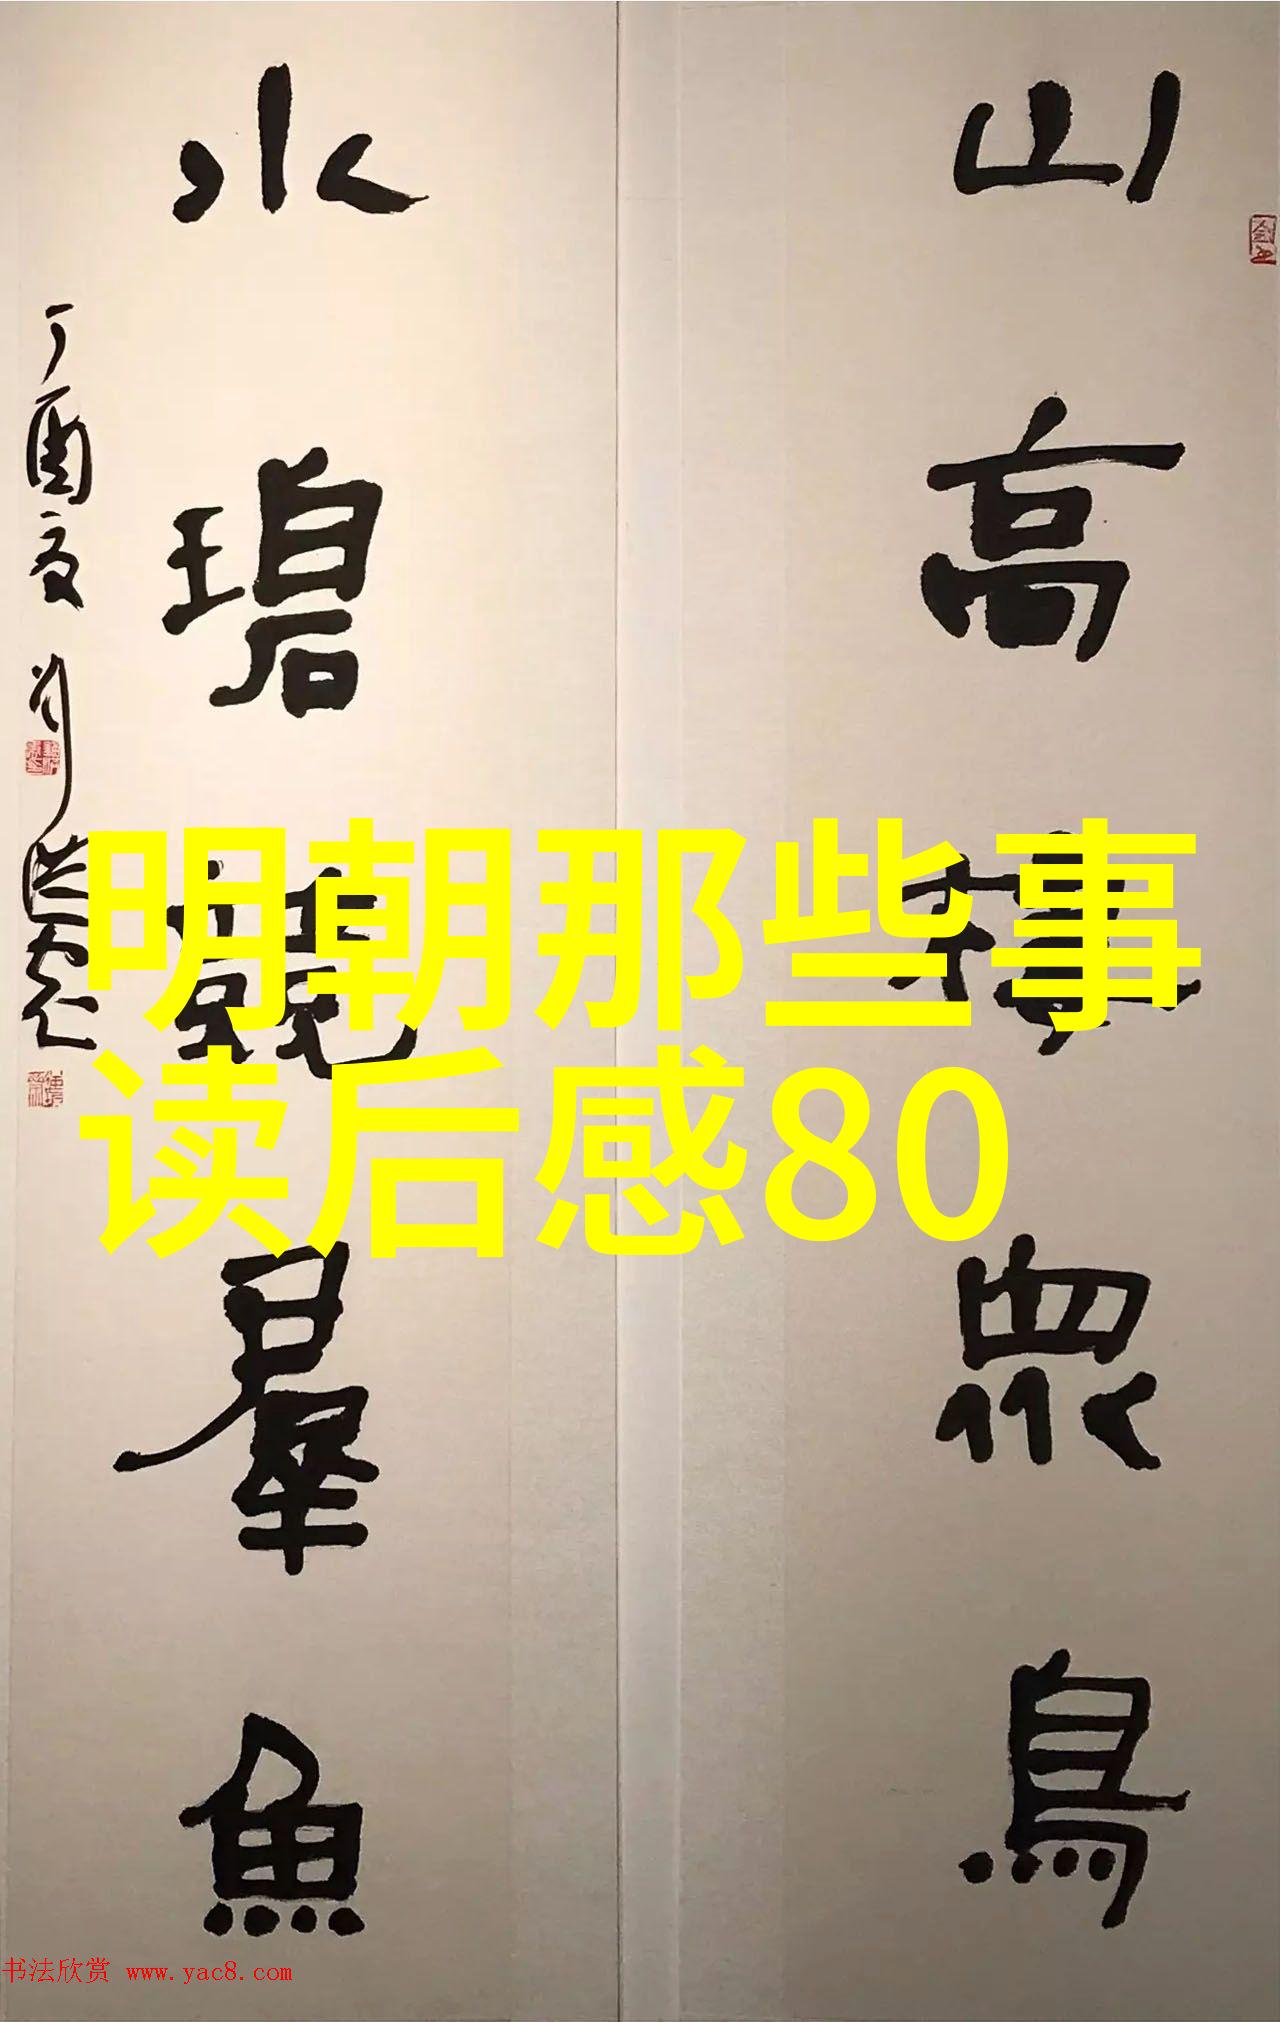 山高棲眾鳥
水碧競羣魚
丁酉夏 刘洪彪
明朝那些事
读后感80
书法欣赏 www.yac8.com